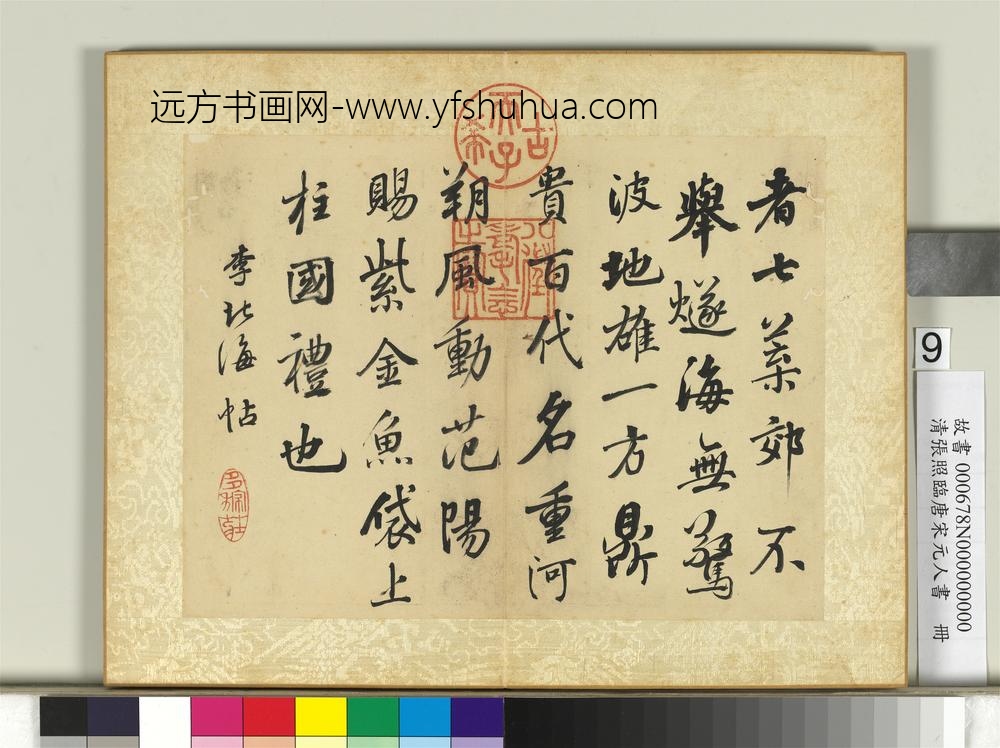 远方书画网-www.yfshuhua.com
者七萃郊不
舉燧海無驚
波地雄一方鼎
貴百代名重河
朔風動范陽
賜紫金魚袋上
柱國禮也
李北海帖
古希天子
八徵耄念之寶
9
故書 000678N000000000
清張照臨唐宋元人書 冊